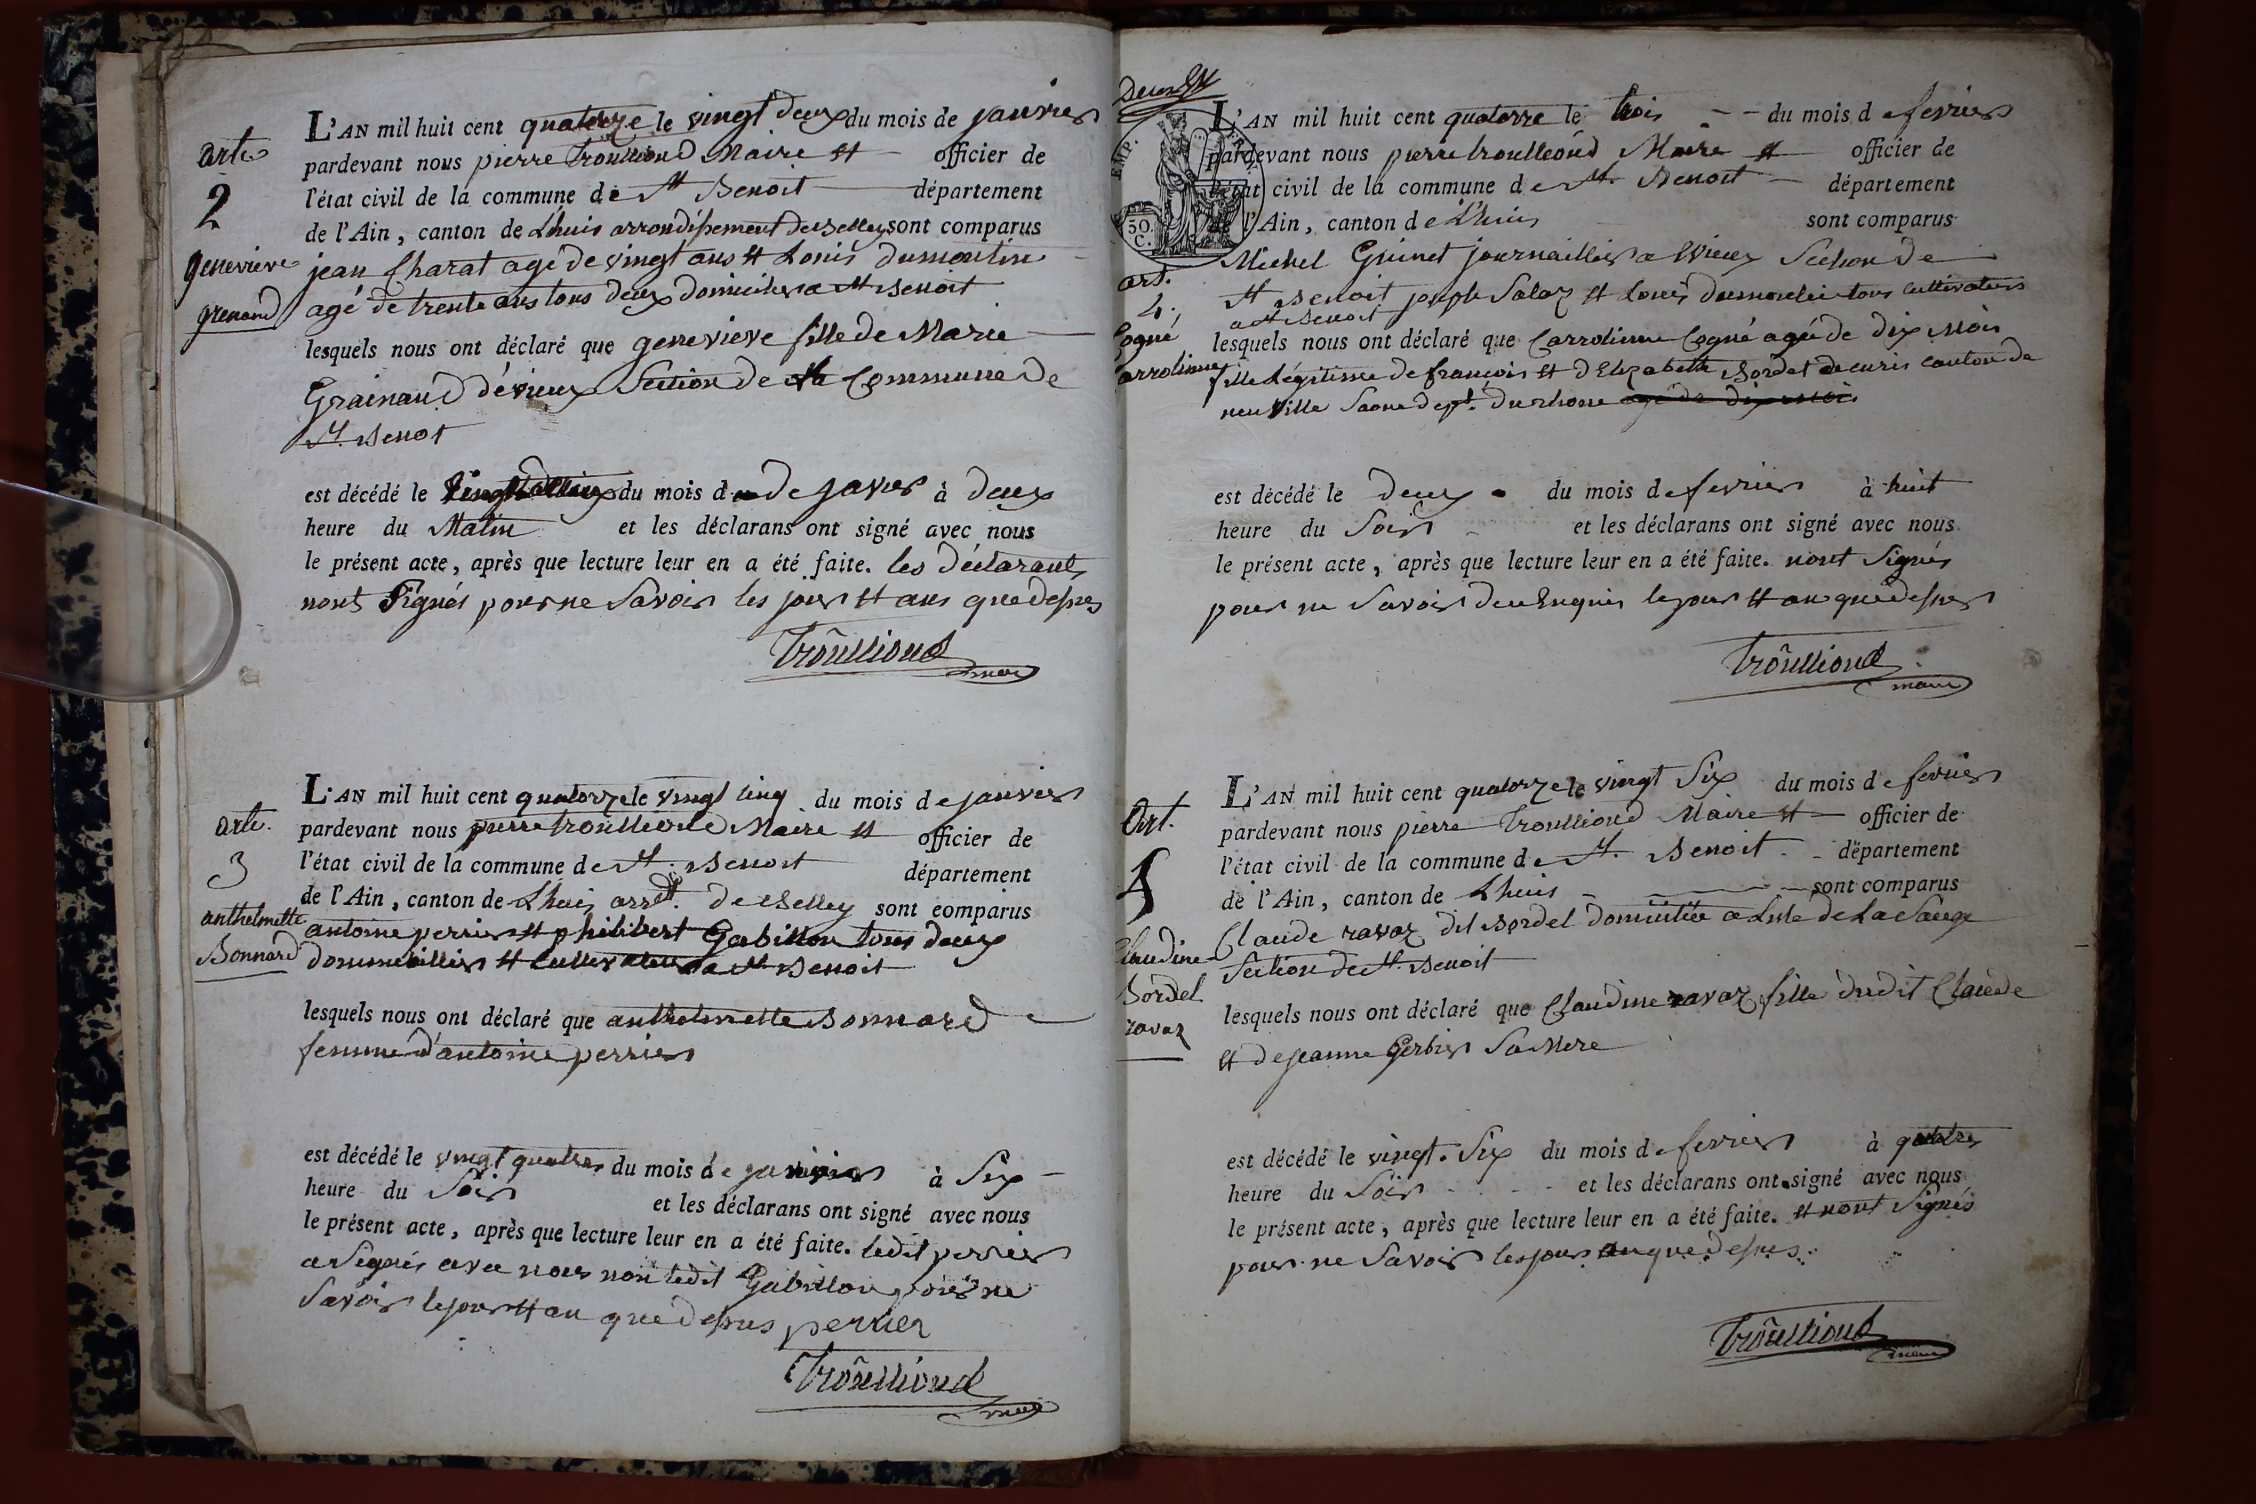 arte
2
genevieve
grenand
L'AN mil huit cent quatorze le vingt deux du mois de janvier
pardevant nous pierre Troullioud Maire et officier de
l'état civil de la commune de St Benoit département
de l'Ain, canton de Lhuis arrondissement de Belley sont comparus
jean Charat agé de vingt ans et Louis dumoulin
agé de trente ans tous deux domiciliés a St Benoit
lesquels nous ont déclaré que genevieve fille de Marie
Grainand d'évieux Section de la Commune de
St. Benoit
est décédé le du mois de janvier à deux
heure du Matin et les déclarans ont signé avec nous
le présent acte, après que lecture leur en a été faite. les déclarants
nont Signés pour ne Savoir les jour et ans que dessus
Troullioud
maire
arte.
3
anthelmette
Bonnard
L'AN mil huit cent quatorze le vingt cinq du mois de janvier
pardevant nous pierre troullioud Maire et officier de
l'état civil de la commune de St. Benoit département
de l'Ain, canton de Lhuis arrdt. de Belley sont comparus
antoine perrier et philibert Gabillon tous deux
dommicilliés et cultivateurs a St Benoit
lesquels nous ont déclaré que anthelmette Bonnard
femme d'antoine perrier
est décédé le vingt quatre du mois de janvier à Six
heure du Soir et les déclarans ont signé avec nous
le présent acte, après que lecture leur en a été faite. ledit perrier
a Signés avec nous non ledit Gabillon pour ne
Savoir le jour et an que dessus perrier
Troullioud
maire
EMP.
50
C.
art.
4.
Cogné
Carrolinne
L'AN mil huit cent quatorze le trois du mois de fevrier
pardevant nous pierre troullioud Maire et officier de
l'état civil de la commune de St. Benoit département
de l'Ain, canton de Lhuis sont comparus
Michel Grinet journaillier a Evieux Section de
St Benoit joseph Salaz et Louis dumoulin tous cultivateurs
a St Benoit
lesquels nous ont déclaré que Carrolinne Cogné agée de dix Mois
fille Légitimme de francois et d'Elizabette Bordet de curis canton de
neuville Saone dept. du rhone agé de dix mois
est décédé le deux du mois de fevrier à huit
heure du Soir et les déclarans ont signé avec nous
le présent acte, après que lecture leur en a été faite. nont Signés
pour ne Savoir de ce Enquis le jour et an que dessus
Troullioud
maire
Art.
5
Claudine
Bordel
ravaz
L'AN mil huit cent quatorze le vingt Six du mois de fevrier
pardevant nous pierre Troullioud Maire et officier de
l'état civil de la commune de St. Benoit département
de l'Ain, canton de Lhuis sont comparus
Claude ravaz dit Bordel domiciliée a Lisle de La Sauge
Section de St. Benoit
lesquels nous ont déclaré que Claudine ravaz fille dudit Claude
et de jeanne Gerbier Sa Mere
est décédé le vingt Six du mois de fevrier à quatres
heure du Soir et les déclarans ont signé avec nous
le présent acte, après que lecture leur en a été faite. et nont Signés
pour ne Savoir les jour an que dessus
Troullioud
maire